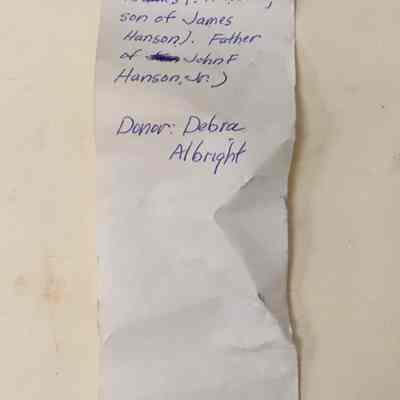 son of James
Hanson). Father
of John F
Hanson, Jr.)
Donor: Debra
Albright